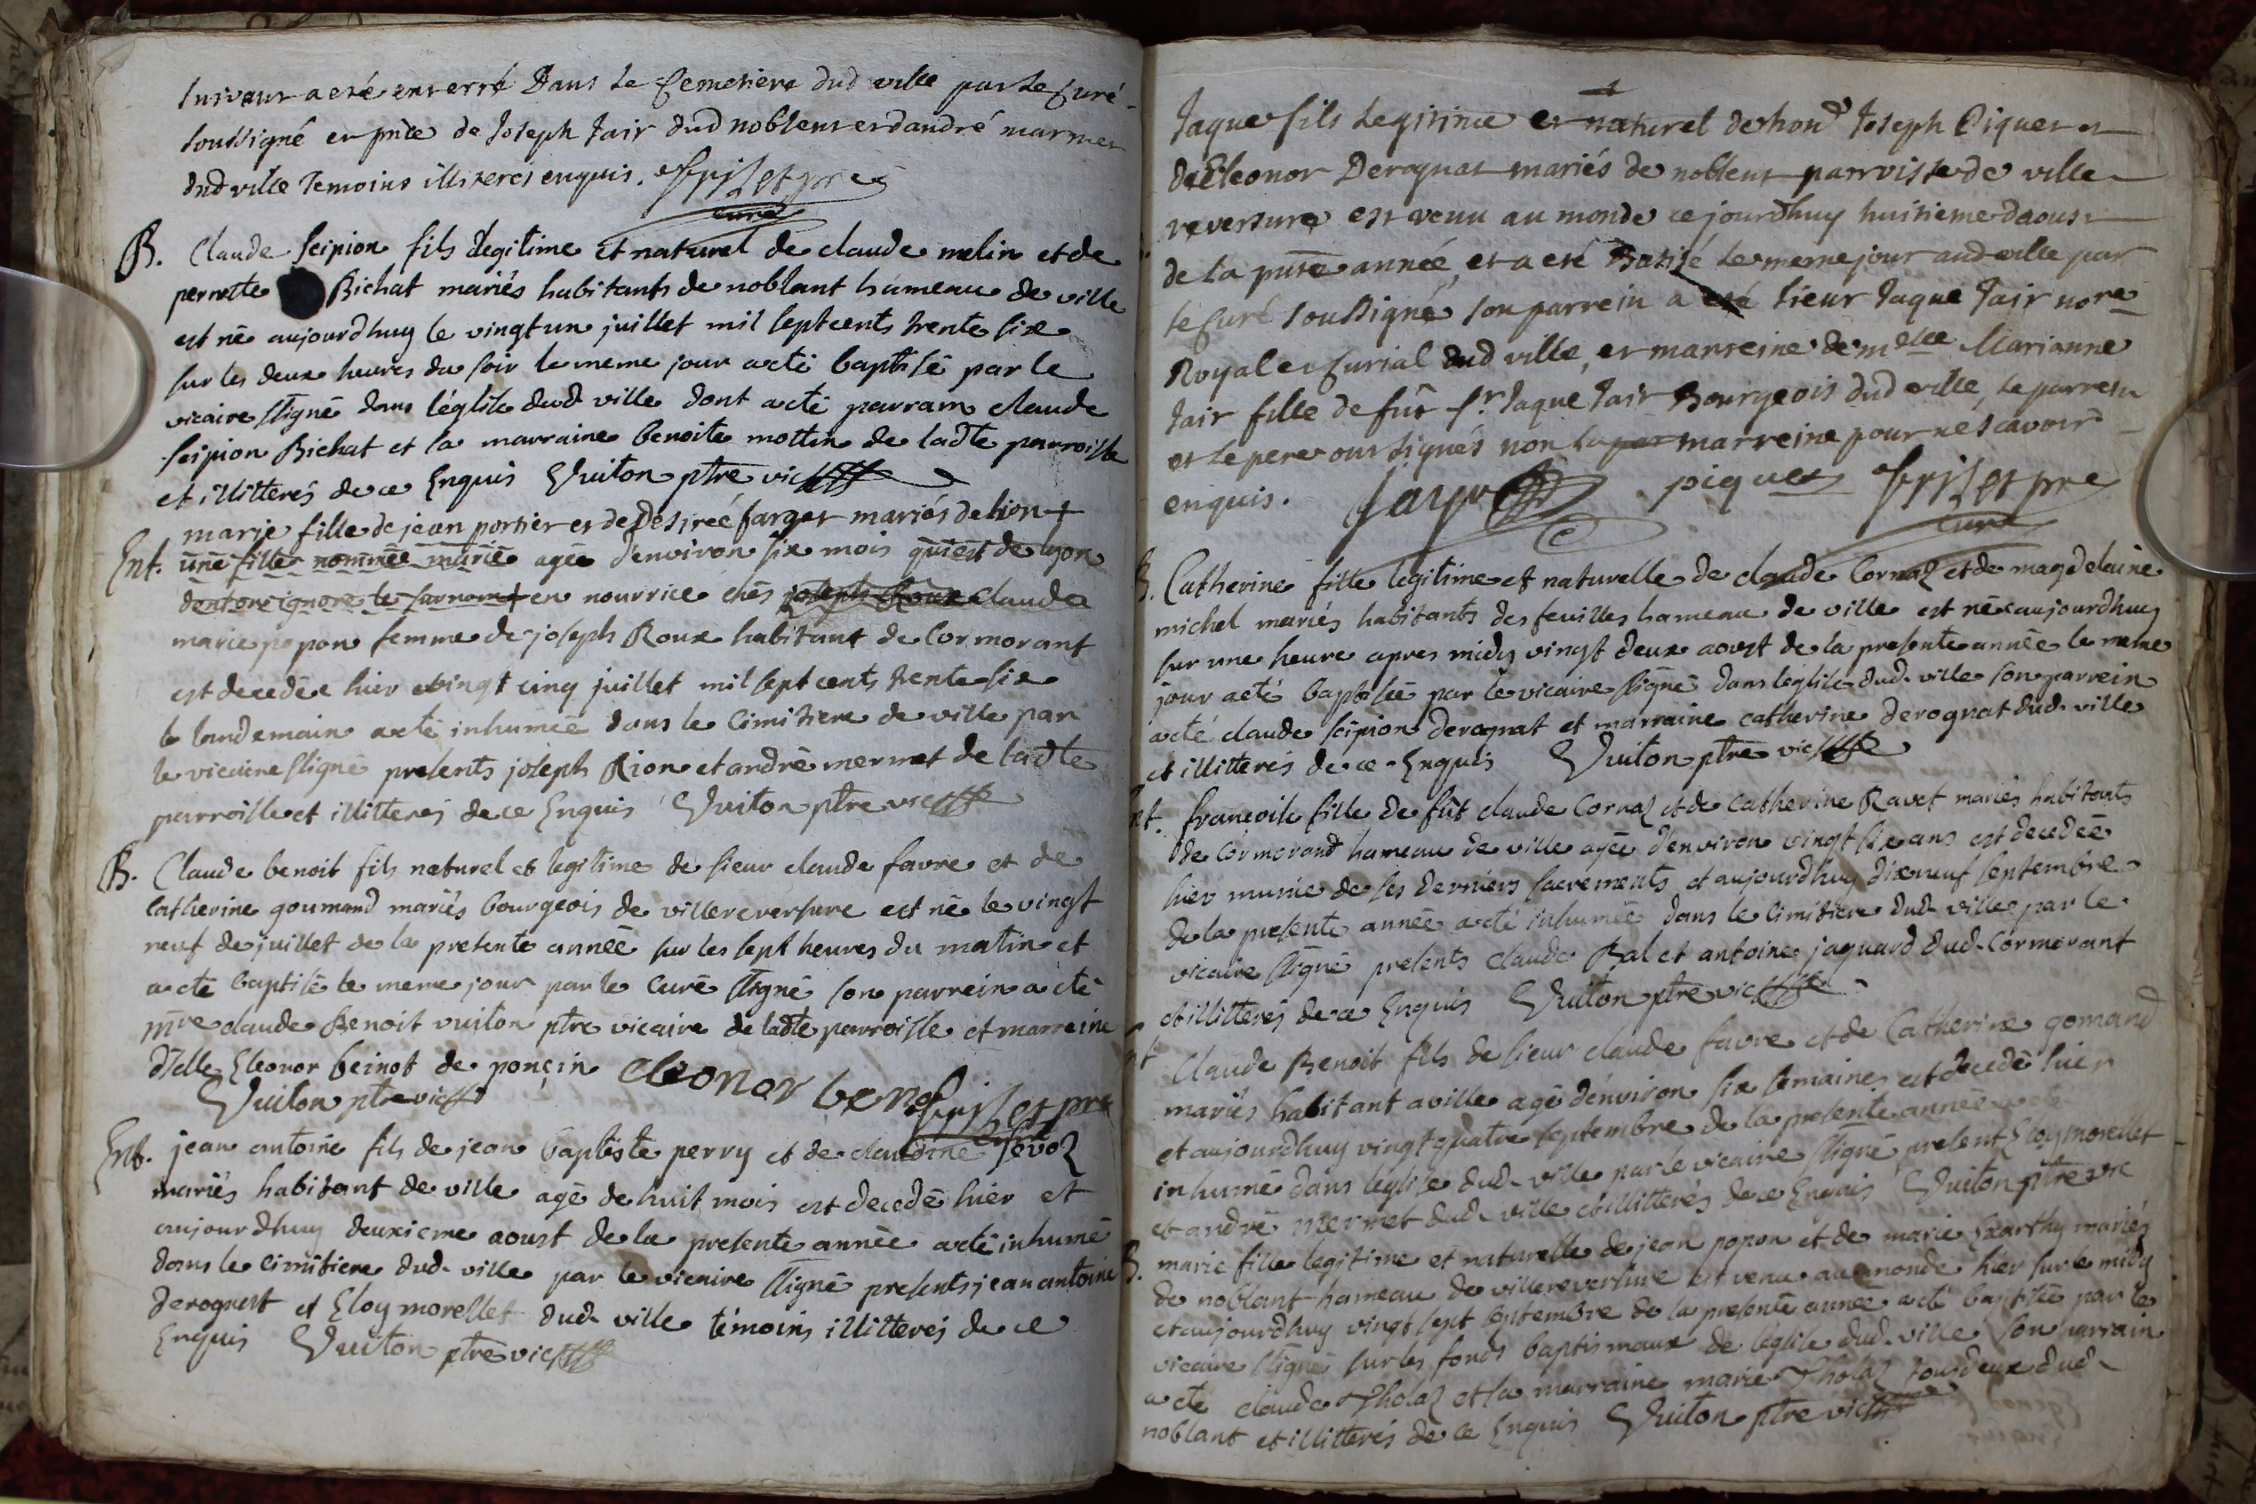 suivant a eté enterré Dans le Cemetiere dud ville par le Curé
soussigné en pnce de Joseph Jair dud noblent et dandré marmet
dud ville Temoins illiterés enquis. frilet pre
curé
B. Claude scipion fils legitime et naturel de claude melin et de
pernette Bichat mariés habitants de noblant hameau de ville
est né aujourdhuy le vingt un juillet mil sept cents trente six
sur les deux heures du soir le meme jour a eté baptisé par le
vicaire ssigné dans léglise dud. ville dont a eté parrain claude
scipion Bichat et la marraine benoite mottin de ladte parroisse
et illitterés de ce Enquis Vuiton ptre vic
marie fille de jean portier et de Desirée farget mariés de lion +
Ent. une fille nommée marie agée denviron six mois qui est de lyon
dont on ignore le surnom + en nourrice chés joseph Roux claudа
marie popon femme de joseph Roux habitant de Cormorant
est decedée hier vingt cinq juillet mil sept cents trente six
le landemain a eté inhumée dans le Cimitiere de ville par
le vicaire ssigné presents joseph Rion et andré mermet de ladte
parroisse et illitterés de ce Enquis Vuiton ptre vic
B. Claude benoit fils naturel et legitime de sieur claude favre et de
catherine goumand mariés bourgeois de villereversure est né le vingt
neuf de juillet de la presente année sur les sept heures du matin et
a eté baptisé le meme jour par le Curé ssigné son parrein a eté
mre claude Benoit vuiton ptre vicaire de ladte parroisse et marreine
dlle Eleonor beinot de ponçin eleonor benot
Vuiton ptre vic frilet pre
curé
Ent. jean antoine fils de jean baptiste perry et de claudine sevoz
mariés habitant de ville agé de huit mois est decedé hier et
aujourdhuy deuxieme aoust de la presente année a eté inhumé
dans le cimitiere dud. ville par le vicaire ssigné presents jean antoine
derognat et Eloy morellet dud. ville témoins illitterés de ce
Enquis Vuiton ptre vic
Jaque fils Legitime et naturel de hond Joseph Piquet et
de Eleonor Derognat mariés de noblent parroisse de ville
reversure est venu au monde ce jourdhuy huitieme daoust
de La pnte année, et a eté Batisé le meme jour aud ville par
le Curé soussigné, son parrein a eté sieur Jaque Jair nore
Royal et Curial dud ville, et marreine demelle Marianne
Jair fille de fût sr. Jaque Jair Bourgeois dud ville, le parrein
et le pere ont signés non la marreine pour ne scavoir
enquis. Jayr piquet frilet pre
curé
B. Catherine fille legitime et naturelle de claude Cornaz et de magdelaine
michel mariés habitants des feuilles hameau de ville est née aujourdhuy
sur une heure apres midy vingt deux aoust de la presente année le meme
jour a eté baptisée par le vicaire ssigné dans léglise dud. ville son parrein
a eté claude scipion derognat et marraine catherine derognat dud. ville
et illitterés de ce Enquis Vuiton ptre vic
Ent. francoise fille de fût claude Cornaz et de Catherine Ravet mariés habitants
de Cormorand hameau de ville agée d'environ vingt six ans est decedée
hier munie de ses derniers sacrements et aujourdhuy dixneuf septembre
de la presente année a eté inhumée dans le cimitiere dud. ville par le
vicaire ssigné presents claude Bal et antoine jaquard dud. Cormorant
et illitterés de ce Enquis Vuiton ptre vic
Ent Claude Benoit fils de sieur claude favre et de Catherine gomand
mariés habitant a ville agé denviron six semaines est decedé hier
et aujourdhuy vingt quatre septembre de la presente année a eté
inhumé dans léglise dud. ville par le vicaire ssigné present Eloy morellet
et andré mermet dud. ville et illitterés de ce Enquis Vuiton ptre vic
B. marie fille legitime et naturelle de jean popon et de marie mariés
de noblant hameau de villereversure est venu au monde hier sur le midy
et aujourdhuy vingt sept septembre de la presente année a eté baptisée par le
vicaire ssigné sur les fonds baptismaux de léglise dud. ville son parrain
a eté claude Tholaz et la marraine marie Tholaz tous deux dud.
noblant et illitterés de ce Enquis Vuiton ptre vic